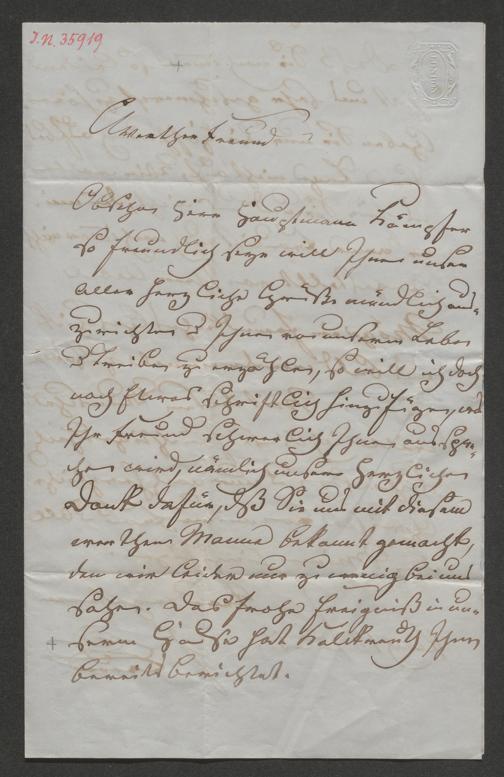 J.N. 35919
Werther Freund
Obschon Herr Hauptmann Kämpfer
so freundlich seyn will Ihnen unser
aller herzliche Grüße mündlich aus-
zurichten & Ihnen von unserem Leben
& treiben zu erzählen, so will ich doch
noch Etwas schriftlich hinzufügen, was
Ihr Freund schwerlich Ihnen ausspre-
chen wird, nämlich unsern herzlichen
Dank dafür, dß Sie uns mit diesem
werthen Manne bekannt gemacht,
den wir leider nur zu wenig bei uns
sahen. Das frohe Ereigniß in un-
serm Hause hat Kalckreuth Ihnen
bereits berichtet.